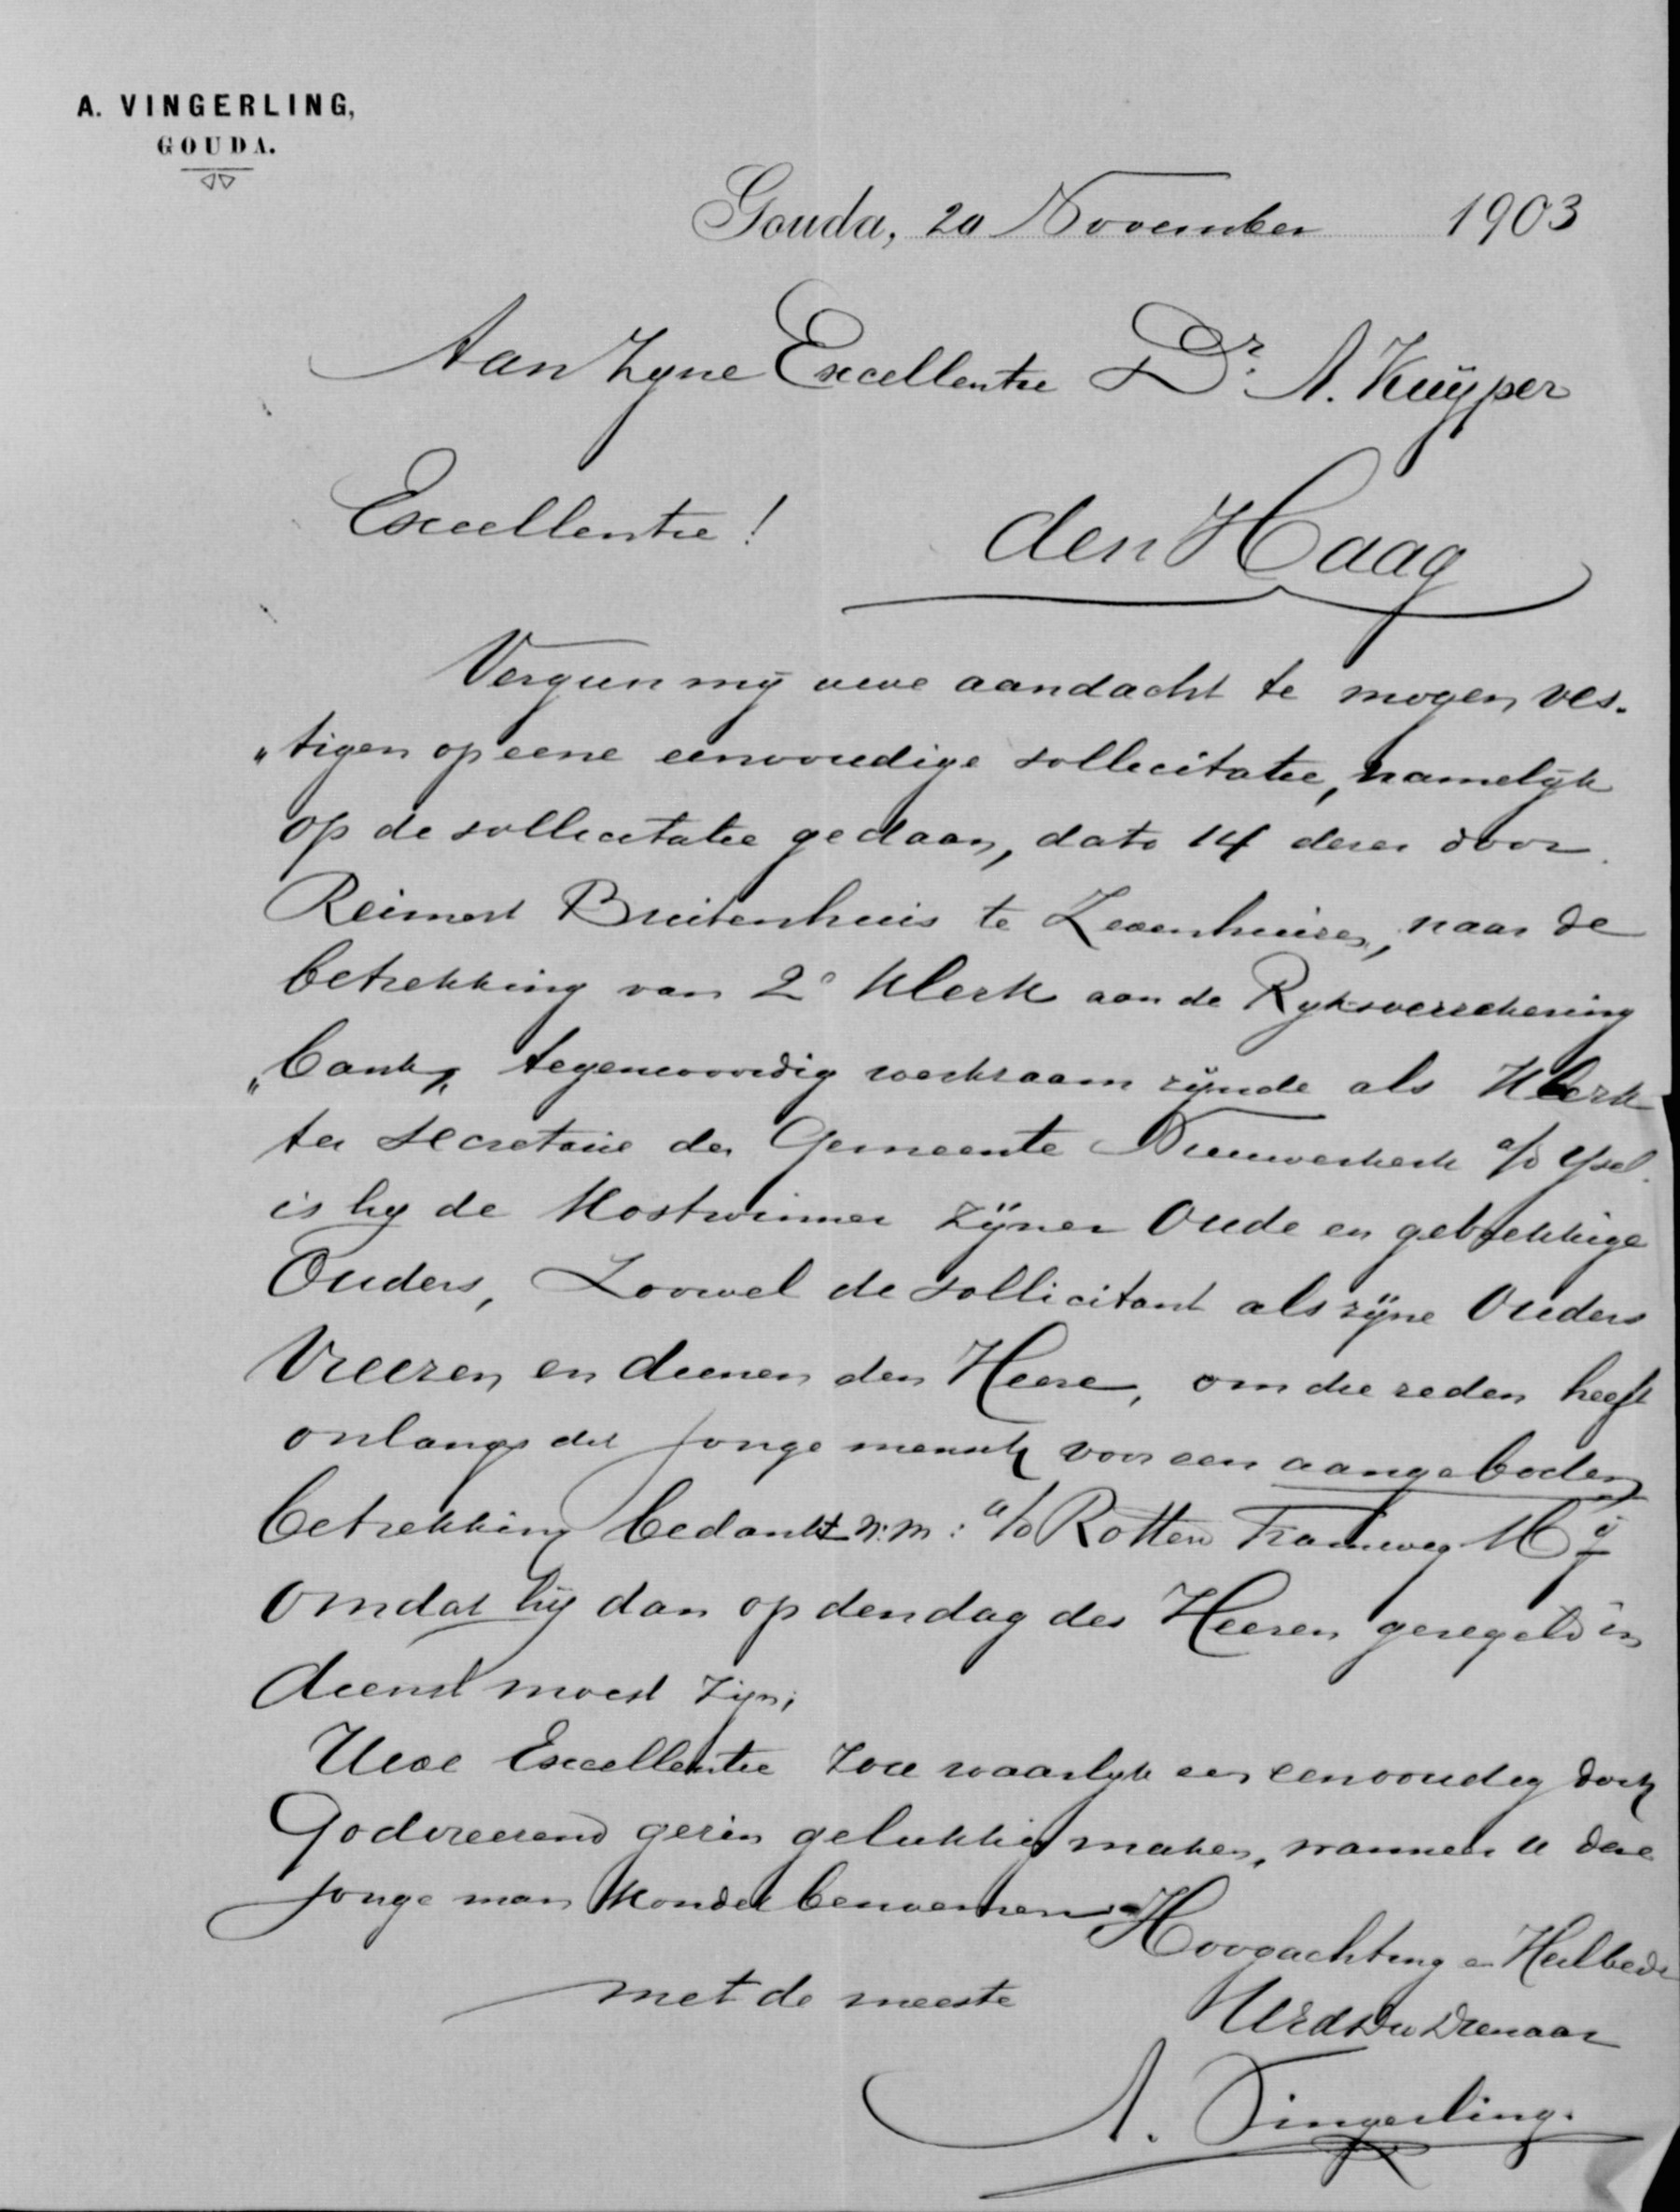 A. VINGERLING,
GOUDA.
Gouda, 20 November 1903
Aan Zyne Excellentie Dr. A. Kuÿper
Excellentie!
den Haag
Vergun mÿ uwe aandacht te mogen ves-
„tigen op eene eenvoudige sollicitatie, namelÿk
op de sollicitatie gedaan, dato 14 dezer door
Buitenhuis te Zevenhuizen, naar de
betrekking van 2e Klerk aan de Ryksverrekening
„bank, tegenwoordig werkzaam zÿnde als Klerk
ter secretarie der Gemeente Nieuwerkerk a/d Ysel.
is hy de Kostwinner zÿner Oude en gebrekkige
Ouders, Zoowel de sollicitant als zÿne Ouders
Vreezen en dienen den Heere, om die reden heeft
onlangs dit jonge mensch voor een aangeboden
betrekking bedankt n.m: a/d Rotterd Tramweg Mÿ
omdat hÿ dan op den dag des Heeren geregeld in
dienst moest zijn;
Uwe Excellentie zou waarlyk een eenvoudig doch
Godvreezend gezin gelukkig maken, wanneer u deze
jonge man konder benoemen
Hoogachting en Heilbede
met de meeste
UEd Dw Dienaar
A. Vingerling.